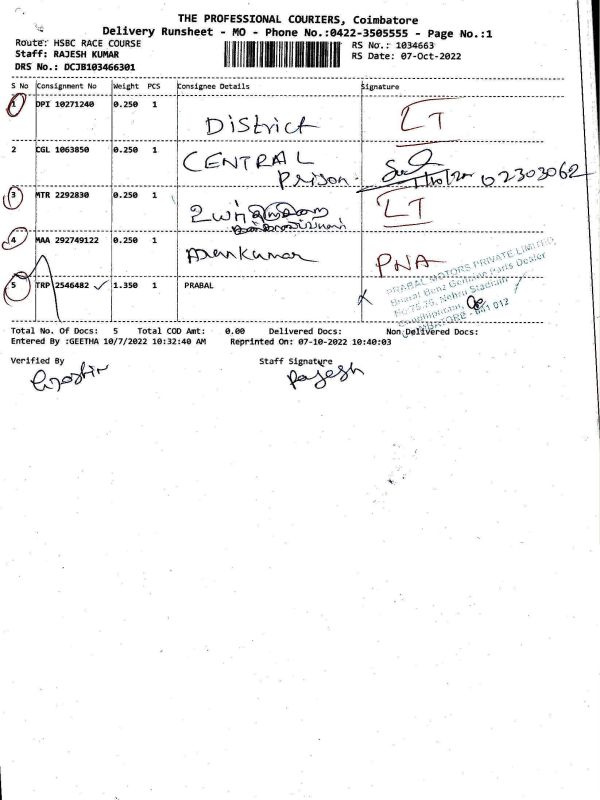 THE PROFESSIONAL COURIERS, Coimbatore
Delivery Runsheet - MO - Phone No.:0422-3505555 - Page No.:1
Route: HSBC RACE COURSE RS No.: 1034663
Staff: RAJESH KUMAR RS Date: 07-Oct-2022
DRS No.: DCJB103466301
S No Consignment No Weight PCS Consignee Details Signature
1 DPI 10271240 0.250 1 District LT
2 CGL 1063850 0.250 1 CENTRAL
Prison. 02303062
3 MTR 2292830 0.250 1 LT
4 MAA 292749122 0.250 1 Arunkumar PNA
5 TRP 2546482 ✓ 1.350 1 PRABAL
PRABAL MOTORS PRIVATE LIMITED,
Bharat Benz Genuine Parts Dealer
No.75,76, Nehru Stadium
COIMBATORE - 641 012
Total No. Of Docs: 5 Total COD Amt: 0.00 Delivered Docs: Non Delivered Docs:
Entered By :GEETHA 10/7/2022 10:32:40 AM Reprinted On: 07-10-2022 10:40:03
Verified By Staff Signature
Rajesh